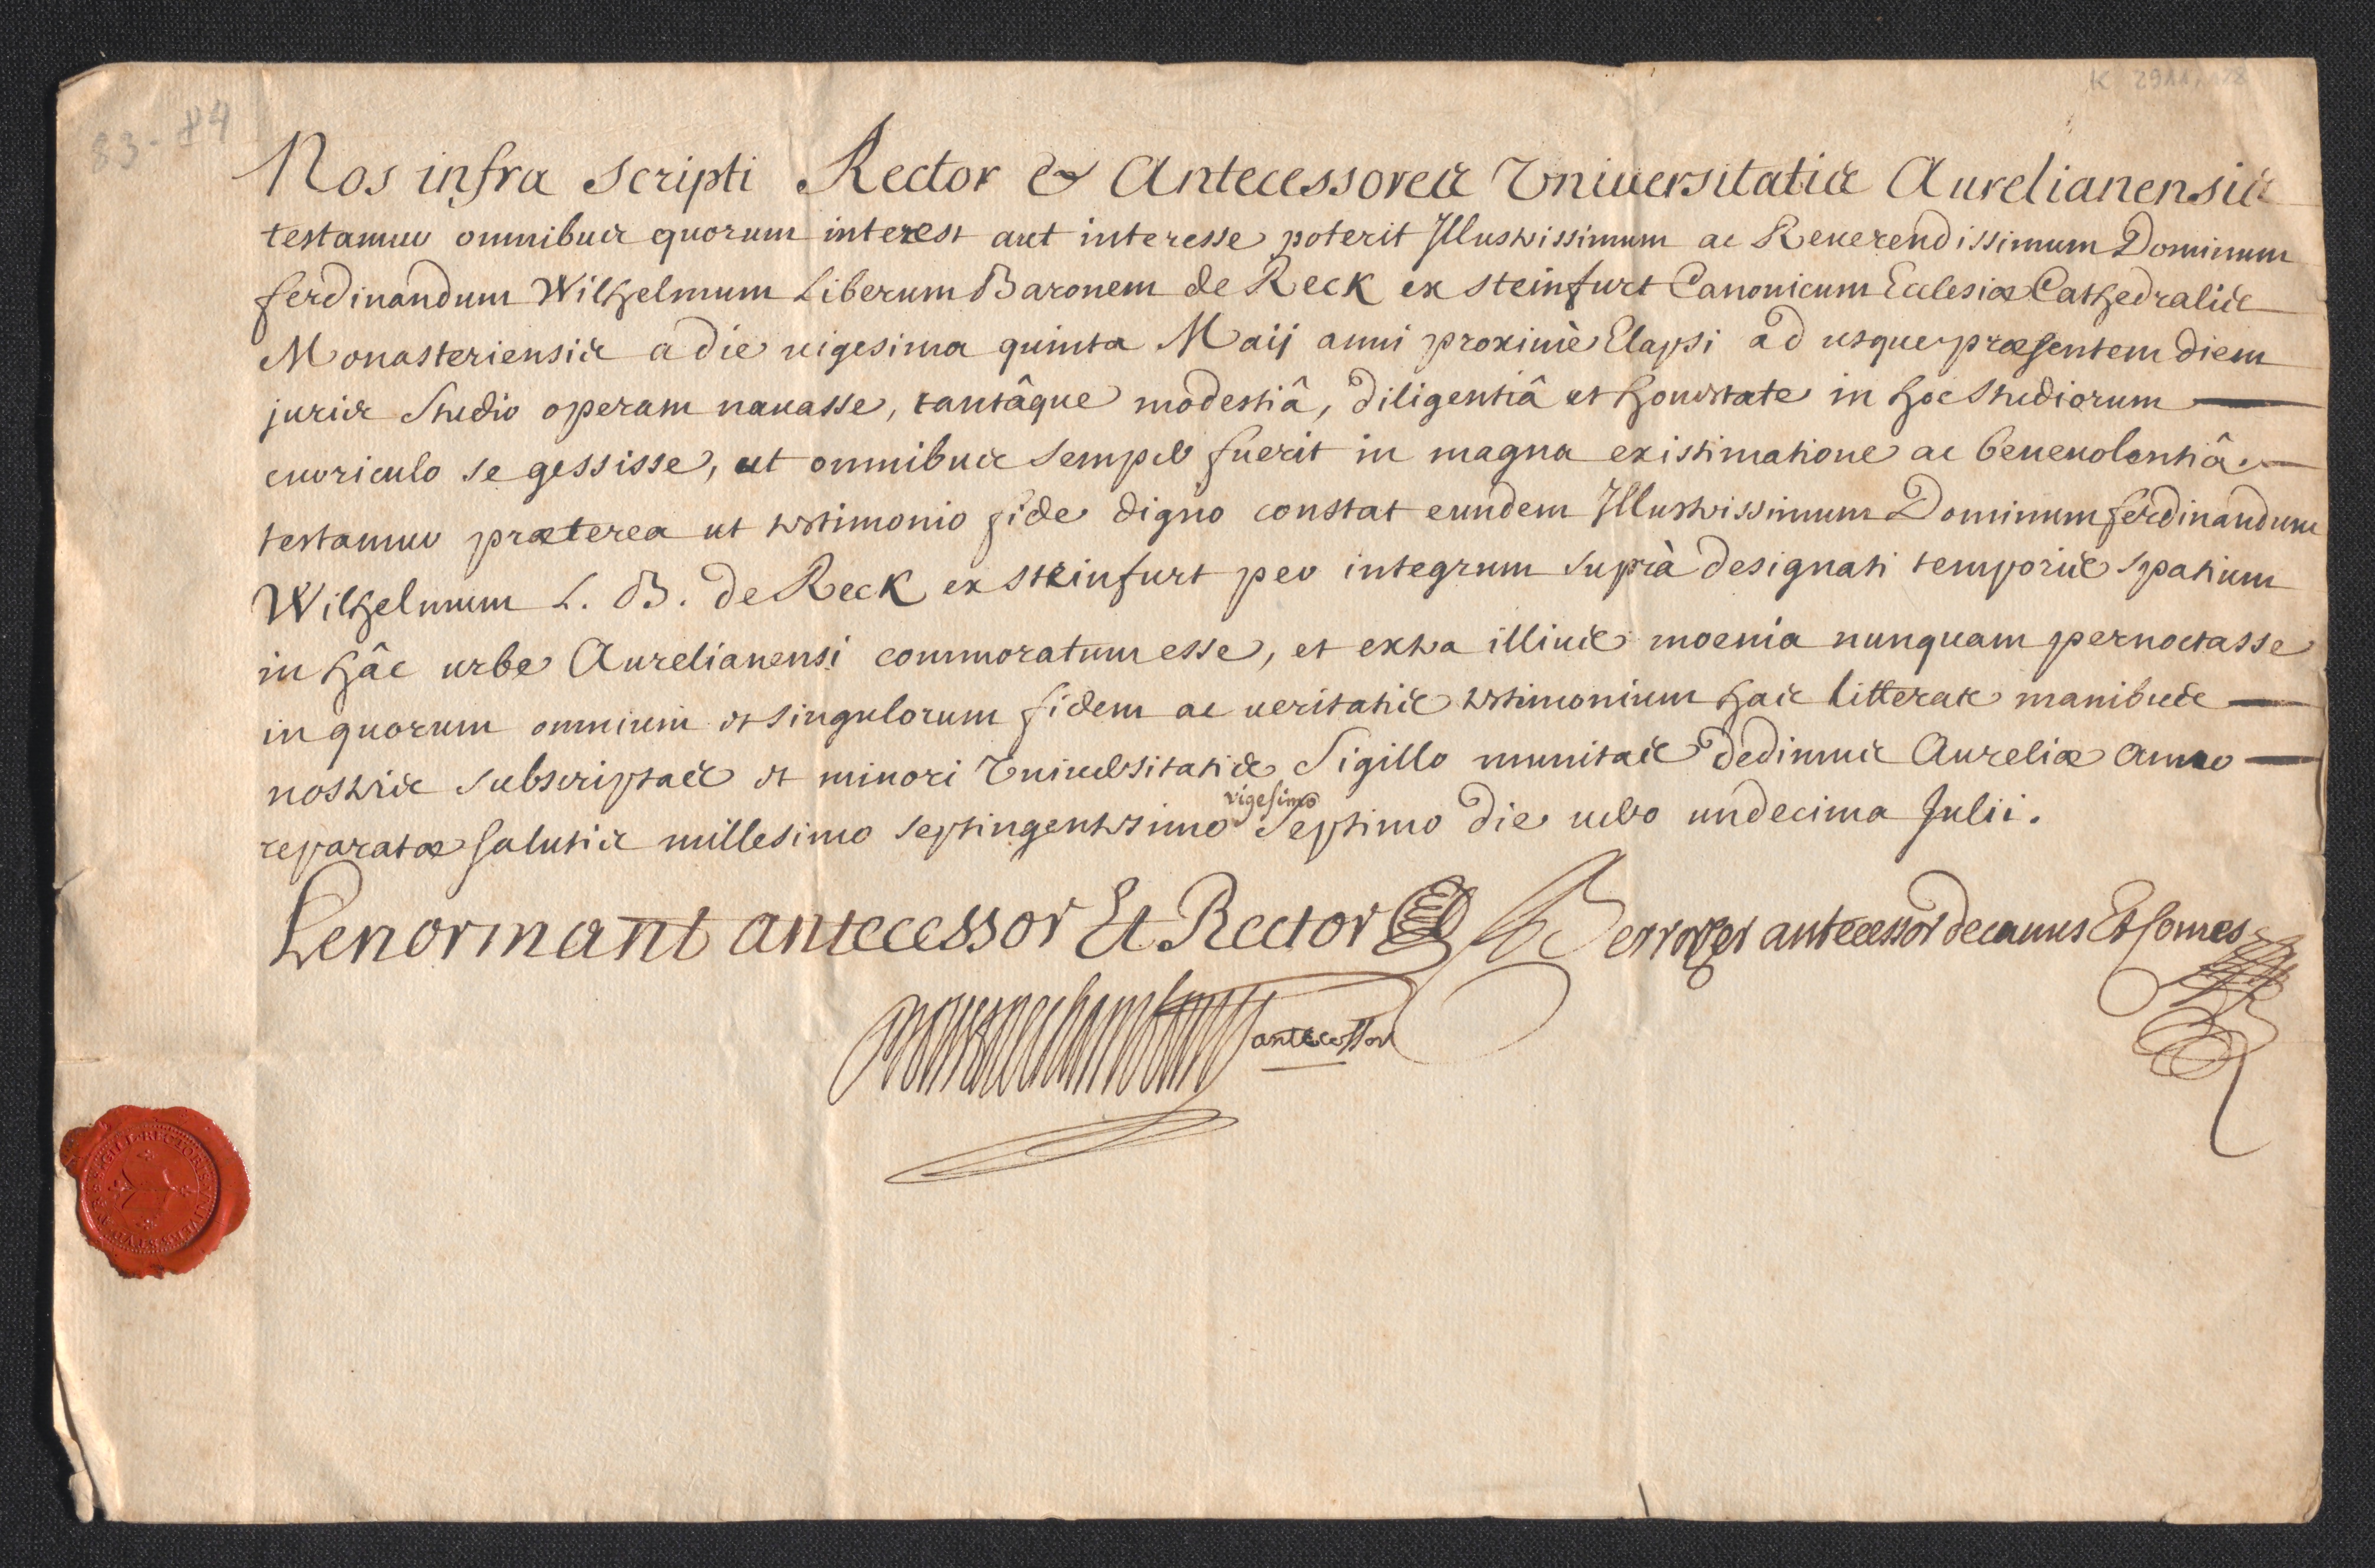 K 2911, 128
83-84
Nos infra scripti Rector & Antecessores Vniuersitatis Aurelianensis
testamur omnibus quorum interest aut interesse poterit Jllustrissimum ac Reuerendissimum Dominum
ferdinandum Wilhelmum Liberum Baronem de Reck ex steinfurt Canonicum Ecclesiæ Cathedralis
Monasteriensis a die uigesima quinta Maij anni proximè Elapsi ad usque præsentem diem
juris studio operam nauasse, tantâque modestiâ, diligentiâ et honestate in hoc studiorum
curriculo se gessisse, ut omnibus semper fuerit in magna existimatione ac beneuolentiâ.
testamur præterea ut testimonio fide digno constat eundem Jllustrissimum Dominum ferdinandum
Wilhelmum L. B. de Reck ex steinfurt per integrum suprà designati temporis spatium
in hâc urbe Aurelianensi commoratum esse, et extra illius moenia nunquam pernoctasse
in quorum omnium et singulorum fidem ac ueritatis testimonium has litteras manibus
nostris subscriptas et minori Vniuersitatis Sigillo munitas dedimus Aureliæ anno
vigesimo
reparatæ salutis millesimo septingentesimo septimo die uero undecima Julii.
Lenormant antecessor Et Rector
Berroyer antecessor decanus Et comes
antecessor
SIGILL RECTORIS VNIVERS